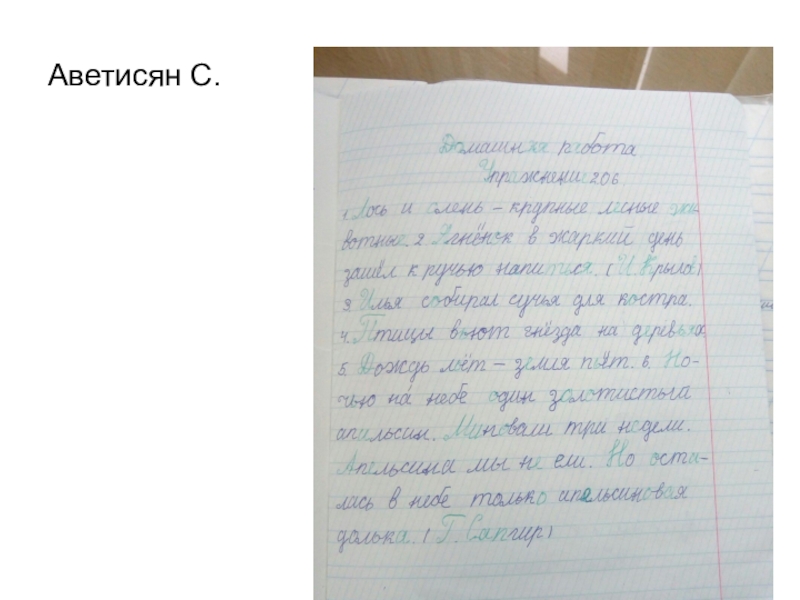 Аветисян С.
Домашняя работа
Упражнение 206
1. Лось и олень – крупные лесные жи-
вотные. 2. Ягнёнок в жаркий день
зашёл к ручью напиться. (И. Крылов)
3. Илья собирал сучья для костра.
4. Птицы вьют гнёзда на деревьях
5. Дождь льёт – земля пьёт. 6. Но-
чью на небе один золотистый
апельсин. Миновали три недели.
Апельсина мы не ели. Но оста-
лась в небе только апельсиновая
долька. (Г. Сапгир)